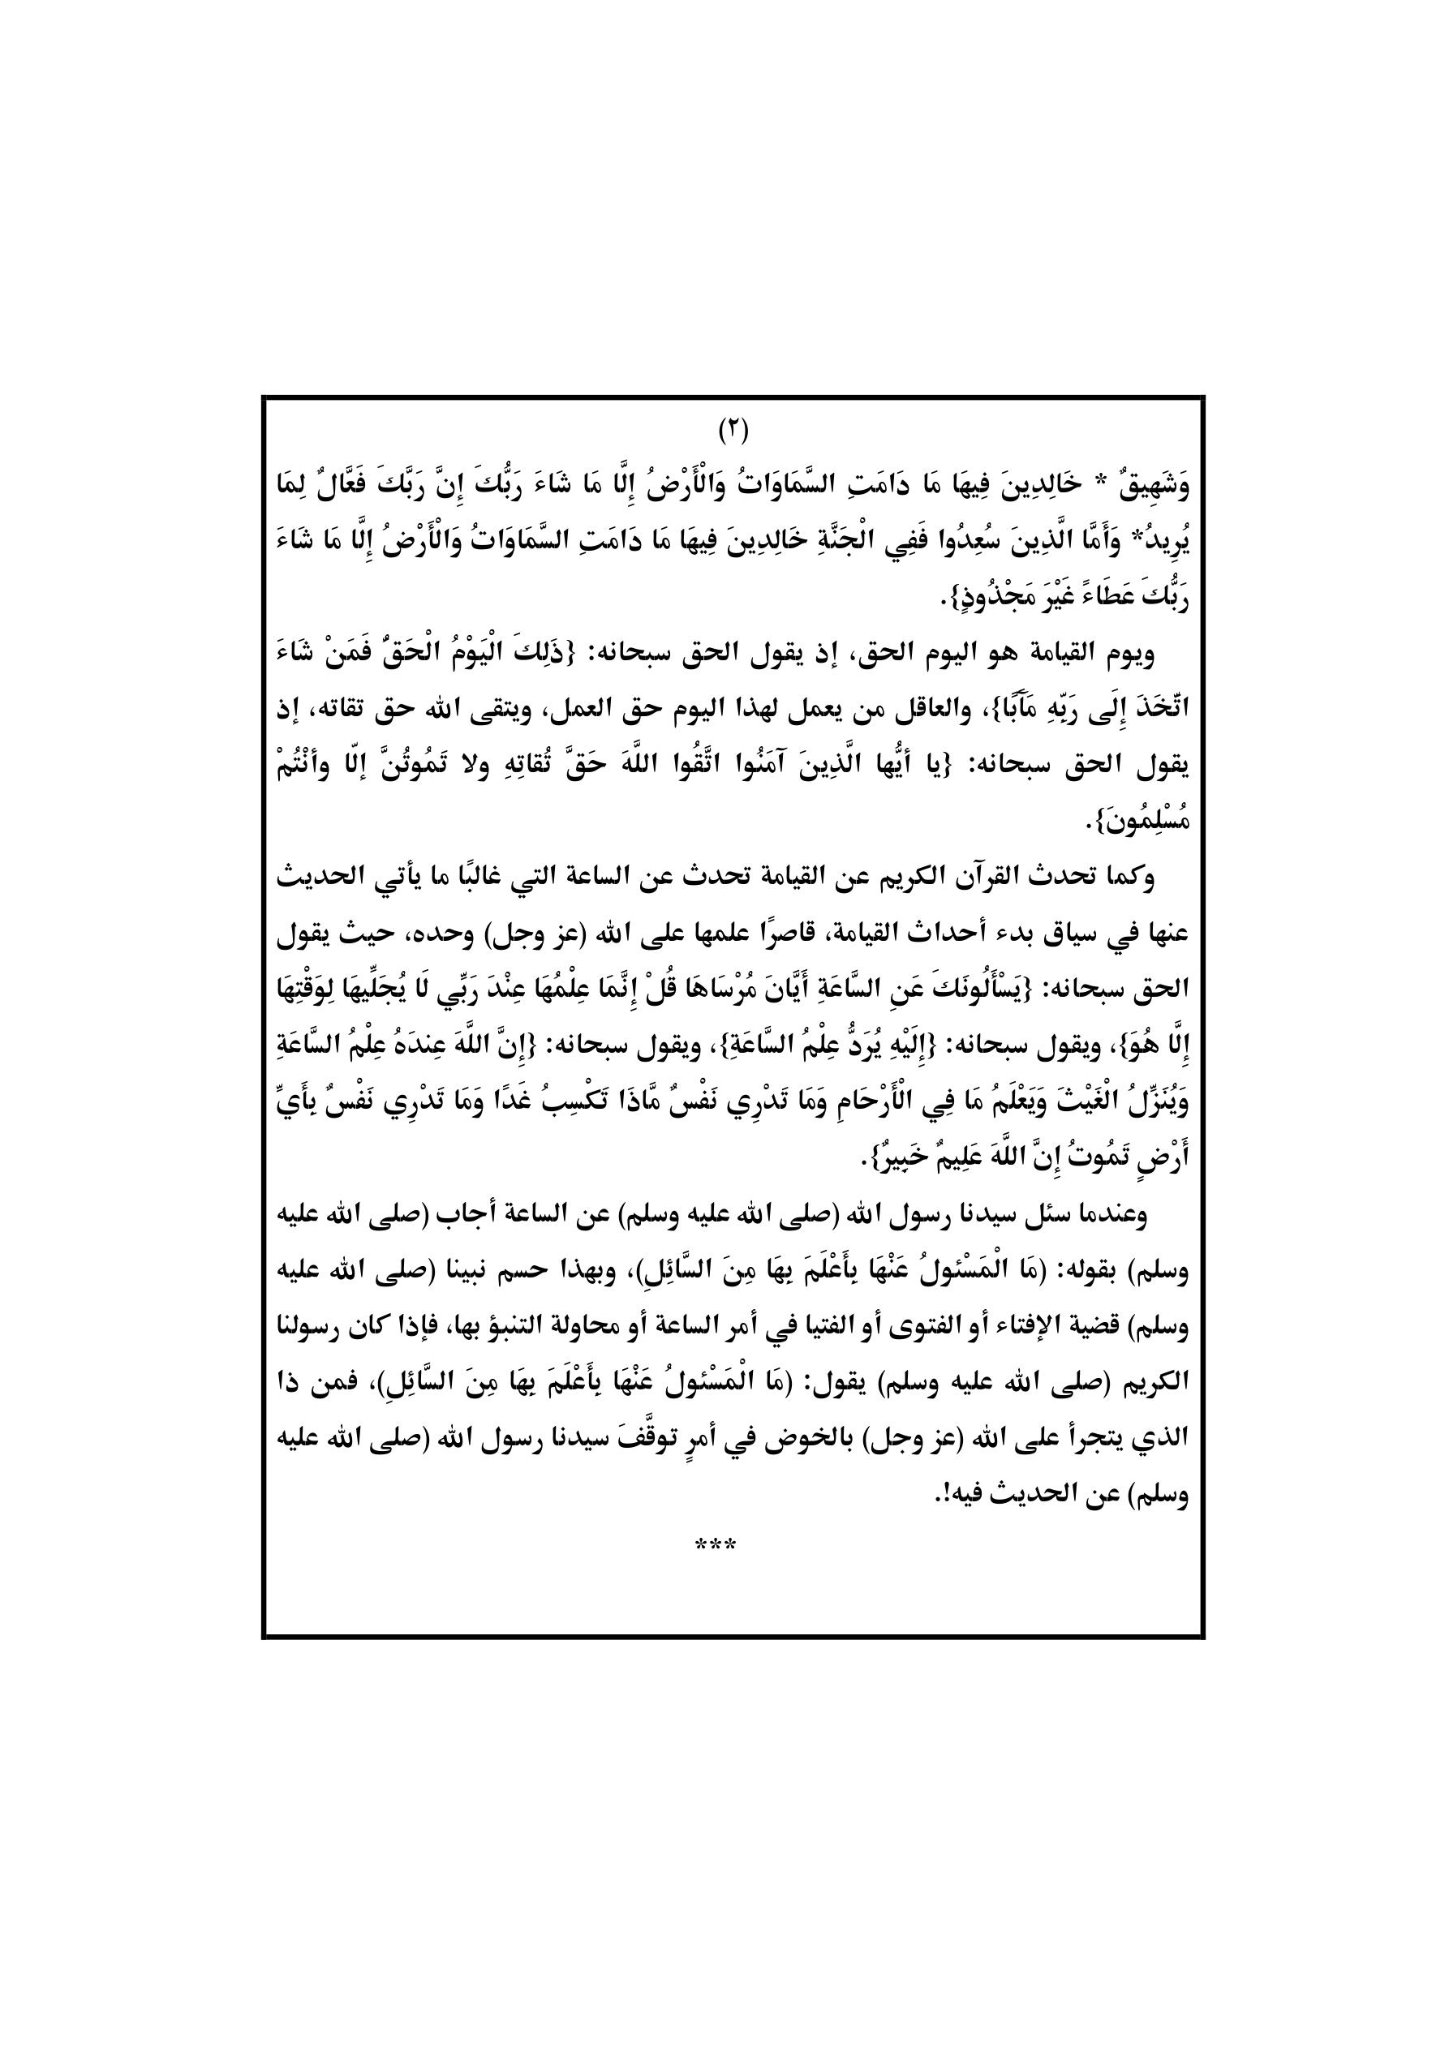 (٢)
وَشَهِيقٌ * خَالِدِينَ فِيهَا مَا دَامَتِ السَّمَاوَاتُ وَالْأَرْضُ إِلَّا مَا شَاءَ رَبُّكَ إِنَّ رَبَّكَ فَعَّالٌ لِمَا
يُرِيدُ* وَأَمَّا الَّذِينَ سُعِدُوا فَفِي الْجَنَّةِ خَالِدِينَ فِيهَا مَا دَامَتِ السَّمَاوَاتُ وَالْأَرْضُ إِلَّا مَا شَاءَ
رَبُّكَ عَطَاءً غَيْرَ مَجْذُوذٍ}.
ويوم القيامة هو اليوم الحق، إذ يقول الحق سبحانه: {ذَلِكَ الْيَوْمُ الْحَقُّ فَمَنْ شَاءَ
اتَّخَذَ إِلَى رَبِّهِ مَآبًا}، والعاقل من يعمل لهذا اليوم حق العمل، ويتقى الله حق تقاته، إذ
يقول الحق سبحانه: {يا أيُّها الَّذِينَ آمَنُوا اتَّقُوا اللَّهَ حَقَّ تُقاتِهِ ولا تَمُوتُنَّ إلّا وأنْتُمْ
مُسْلِمُونَ}.
وكما تحدث القرآن الكريم عن القيامة تحدث عن الساعة التي غالبًا ما يأتي الحديث
عنها في سياق بدء أحداث القيامة، قاصرًا علمها على الله (عز وجل) وحده، حيث يقول
الحق سبحانه: {يَسْأَلُونَكَ عَنِ السَّاعَةِ أَيَّانَ مُرْسَاهَا قُلْ إِنَّمَا عِلْمُهَا عِنْدَ رَبِّي لَا يُجَلِّيهَا لِوَقْتِهَا
إِلَّا هُوَ}، ويقول سبحانه: {إِلَيْهِ يُرَدُّ عِلْمُ السَّاعَةِ}، ويقول سبحانه: {إِنَّ اللَّهَ عِندَهُ عِلْمُ السَّاعَةِ
وَيُنَزِّلُ الْغَيْثَ وَيَعْلَمُ مَا فِي الْأَرْحَامِ وَمَا تَدْرِي نَفْسٌ مَّاذَا تَكْسِبُ غَدًا وَمَا تَدْرِي نَفْسٌ بِأَيِّ
أَرْضٍ تَمُوتُ إِنَّ اللَّهَ عَلِيمٌ خَبِيرٌ}.
وعندما سئل سيدنا رسول الله (صلى الله عليه وسلم) عن الساعة أجاب (صلى الله عليه
وسلم) بقوله: (مَا الْمَسْئولُ عَنْهَا بِأَعْلَمَ بِهَا مِنَ السَّائِلِ)، وبهذا حسم نبينا (صلى الله عليه
وسلم) قضية الإفتاء أو الفتوى أو الفتيا في أمر الساعة أو محاولة التنبؤ بها، فإذا كان رسولنا
الكريم (صلى الله عليه وسلم) يقول: (مَا الْمَسْئولُ عَنْهَا بِأَعْلَمَ بِهَا مِنَ السَّائِلِ)، فمن ذا
الذي يتجرأ على الله (عز وجل) بالخوض في أمرٍ توقَّفَ سيدنا رسول الله (صلى الله عليه
وسلم) عن الحديث فيه!.
***